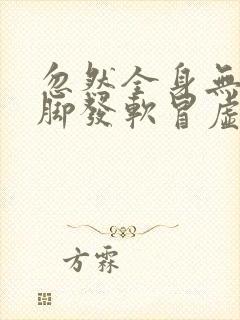 忽然全身無
腳發軟冒虛
方霖